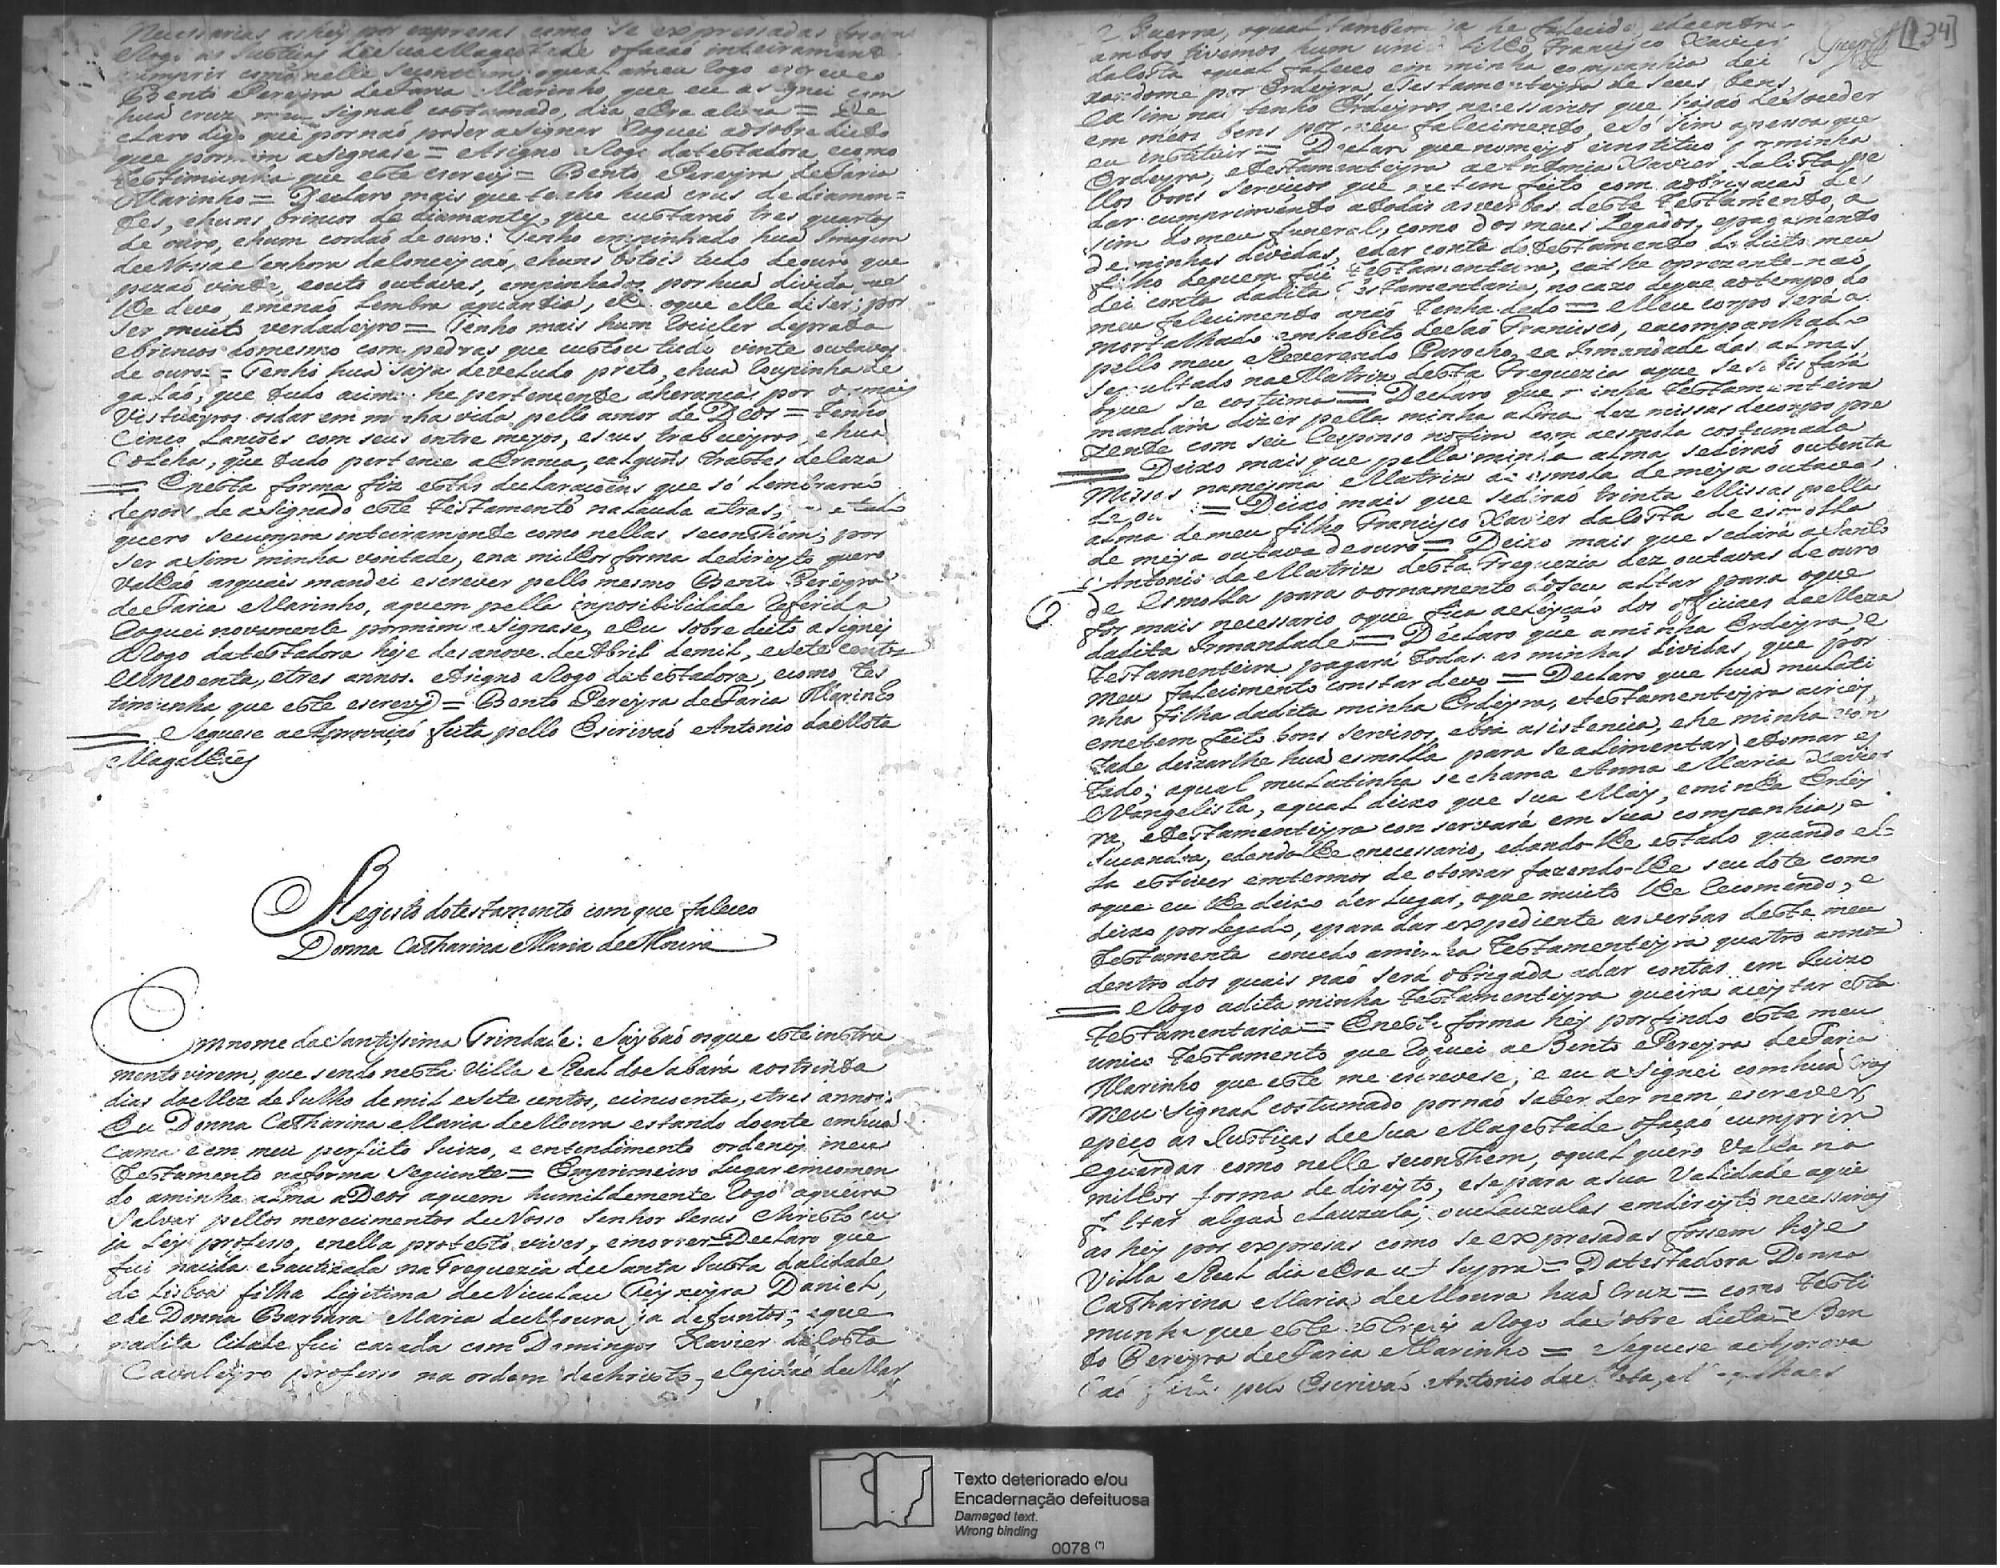 Necessarias as hey por expresas como se expressadas fosem
e logo as Justiças de Sua Magestade o façaõ inteiramente
cumprir como nelle se conthem, o qual a meu rogo escreveo
Bento Pereyra de Faria Marinho, que eu asignei com
huã cruz meu signal costumado, dia e Era asima = De
claro digo que por naõ poder asignar Roguei ao sobre dicto
que por mim asignase = Asigno a Rogo da testadora, e como
testimunha que este escrevy = Bento Pereyra de Faria
Marinho = Declaro mais que tenho huã crus de diaman=
tes, e huns brincos de diamantes, que custaraõ tres quartos
de ouro, e hum cordaõ de ouro: Tenho empinhado huã Imagem
de Nossa Senhora da Conceyçaõ, e huns botois tudo de ouro que
pezaõ vinte, e outo outavas, empinhados por huã divida, que
lhe devo, e me naõ lembra a quantia, e he o que elle diser; por
ser muito verdadeyro = Tenho mais hum Cociler de prata
e brincos do mesmo com pedras que custou tudo vinte outavas
de ouro = Tenho huã saya de veludo preto, e huã Roupinha de
galaõ, que tudo asima he pertencente a herança, por os mais
Vestuayros os dar em minha vida pello amor de Deos = Tenho
Cinco Lançóes com seus entre meyos, e seus trabiceyros, e huã
Colcha, que tudo pertence a Erança, e alguñs trastes de Caza
= E nesta forma fiz estas declaraçoens que só lembraraõ
depois de asignado este testamento na Lauda atras, e tudo
quero se cumpra inteiramente como nellas se conthem, por
ser asim minha vontade, e na milhor forma de direyto quero
valhaõ as quais mandei escrever pello mesmo Bento Pereyra
de Faria Marinho, a quem pella inposibilidade Referida
Roguei novamente por mim asignase, e Eu sobre dito asigney
a Rogo da testadora hoje desanove de Abril de mil, e sete centos
e sincoenta, e tres annos. Asigno a Rogo da testadora, e como tes
timunha que este escrevy = Bento Pereyra de Faria Marinho
= Seguese a Aprovaçaõ feita pello Escrivaõ Antonio da Mota
Magalhaẽs
Registo do testamento com que faleceo
Donna Catharina Maria de Moura
Em nome da Santissima Trindade: Saybaõ os que este instru
mento virem, que sendo nesta Villa Real do Sabará aos trinta
dias do Mez de Julho de mil e sete centos, e sincoente, e tres annos.
Eu Donna Catharina Maria de Moura estando doente em huã
cama e em meu perfeito Juizo, e entendimento ordeney meu
testamento na forma seguinte = Em primeiro Lugar emcomen
do a minha alma a Deos a quem humildemente Rogo a queira
Salvar pellos merecimentos de Nosso Senhor Jesus Christo cu
ja Ley professo, e nella protesto viver, e morrer = Declaro que
fui nacida e bautizada na Freguezia de Santa Justa da Cidade
de Lisboa filha Ligitima de Niculau Daniel,
e de Donna Barbara Maria de Moura já defuntos; e que
na dita Cidade fui cazada com Domingos Xavier da Costa
Cavaleyro professo na ordem de christo, e Capitaõ de Mar,
[134]
e Guerra, o qual tambem ja he falecido, e de entre
ambos tivemos hum unico filho Francisco Xavier
da Costa o qual faleceo em minha companhia dei
xandome por Erdeyra, e testamenteyra de seus bens,
e asim naõ tenho Erdeyros necessarios que hajaõ de suceder
em meos bens por meu falecimento, e só sim a pessoa que
eu instituir = Declaro que nomeyo e instituo por minha
Erdeyra, e testamenteyra a Antonia Xavier da Costa pe
llos bons serviços que me tem feito com a obrigaçaõ de
dar cumprimento a todas as verbas deste testamento, a
sim do meu funeral, como dos meus Legados, e pagamento
de minhas dividas, e dar conta do testamento do dito meu
filho de quem fui testamenteira, e athe o prezente naõ
dei conta da dita testamentaria, no cazo de que ao tempo do
meu falecimento a naõ tenha dado = Meu corpo será a
mortalhado em habito de Saõ Francisco, e acompanhado
pello meu Reverendo Parocho, e a Irmandade das almas,
sepultado na Matriz desta Freguezia a que se satisfará
o que se costuma = Declaro que minha testamenteira
mandará dizer pella minha alma dez missas de corpo pre
zente com seu Responso no fim com a esmola costumada
= Deixo mais que pella minha alma se diraõ outenta
Missas na mesma Matriz de esmola de meya outava
de ouro = Deixo mais que se diraõ trinta Missas pella
alma de meu filho Francisco Xavier da Costa de esmolla
de meya outava de ouro = Deixo mais que se dará a Santo
Antonio da Matriz desta Freguezia dez outavas de ouro
de Esmolla para o ornamento do seu altar para o que
for mais necessario o que fica a eleyçaõ dos officiaes da Meza
da dita Irmandade = Declaro que a minha Erdeyra, e
testamenteira pagará todas as minhas dividas, que por
meu falecimento constar devo = Declaro que huã mulati
nha filha da dita minha Erdeyra, e testamenteyra a criey,
e me tem feito bons serviços, e boa asistencia, e he minha von
tade deixarlhe huã esmolla para se alimentar, e tomar es
tado; a qual mulatinha se chama Anna Maria Xavier
Vangelista, a qual deixo que sua May, e minha Erdey
ra, e testamenteyra conservará em sua companhia, e
, e dando lhe o necessario, e dando lhe estado quando el=
la estiver em termos de o tomar fazendo lhe seu dote com
o que eu lhe deixo der lugar, o que muito lhe Recomendo, e
deixo por Legado, e para dar expediente as verbas deste meu
testamento concedo a minha testamenteyra quatro annos
dentro dos quais naõ será obrigada a dar contas em Juizo
= e Rogo a dita minha testamenteyra queira aceytar esta
testamentaria = E nesta forma hey por findo este meu
unico testamento que Roguei a Bento Pereyra de Faria
Marinho que este me escrevese, e eu asignei com huã Cruz
meu signal costumado por naõ saber Ler nem escrever,
e peço as Justiças de Sua Magestade o façaõ cumprir
e guardar como nelle se conthem, o qual quero Valha na
milhor forma de direyto, e se para a sua Validade aqui
faltar algua clauzula, ou clauzulas em direyto necessarias
as hey por expresas como se expresadas fossem hoje
Villa Real dia e Era ut supra = Da testadora Donna
Catharina Maria de Moura huã Cruz = como testi
munha que este escrevy a Rogo da sobre dicta = Ben
to Pereyra de Faria Marinho = Seguese a Aprova
çaõ feita pelo Escrivaõ Antonio da Mota Magalhaes
Texto deteriorado e/ou
Encadernação defeituosa
Damaged text.
Wrong binding
0078 (*)